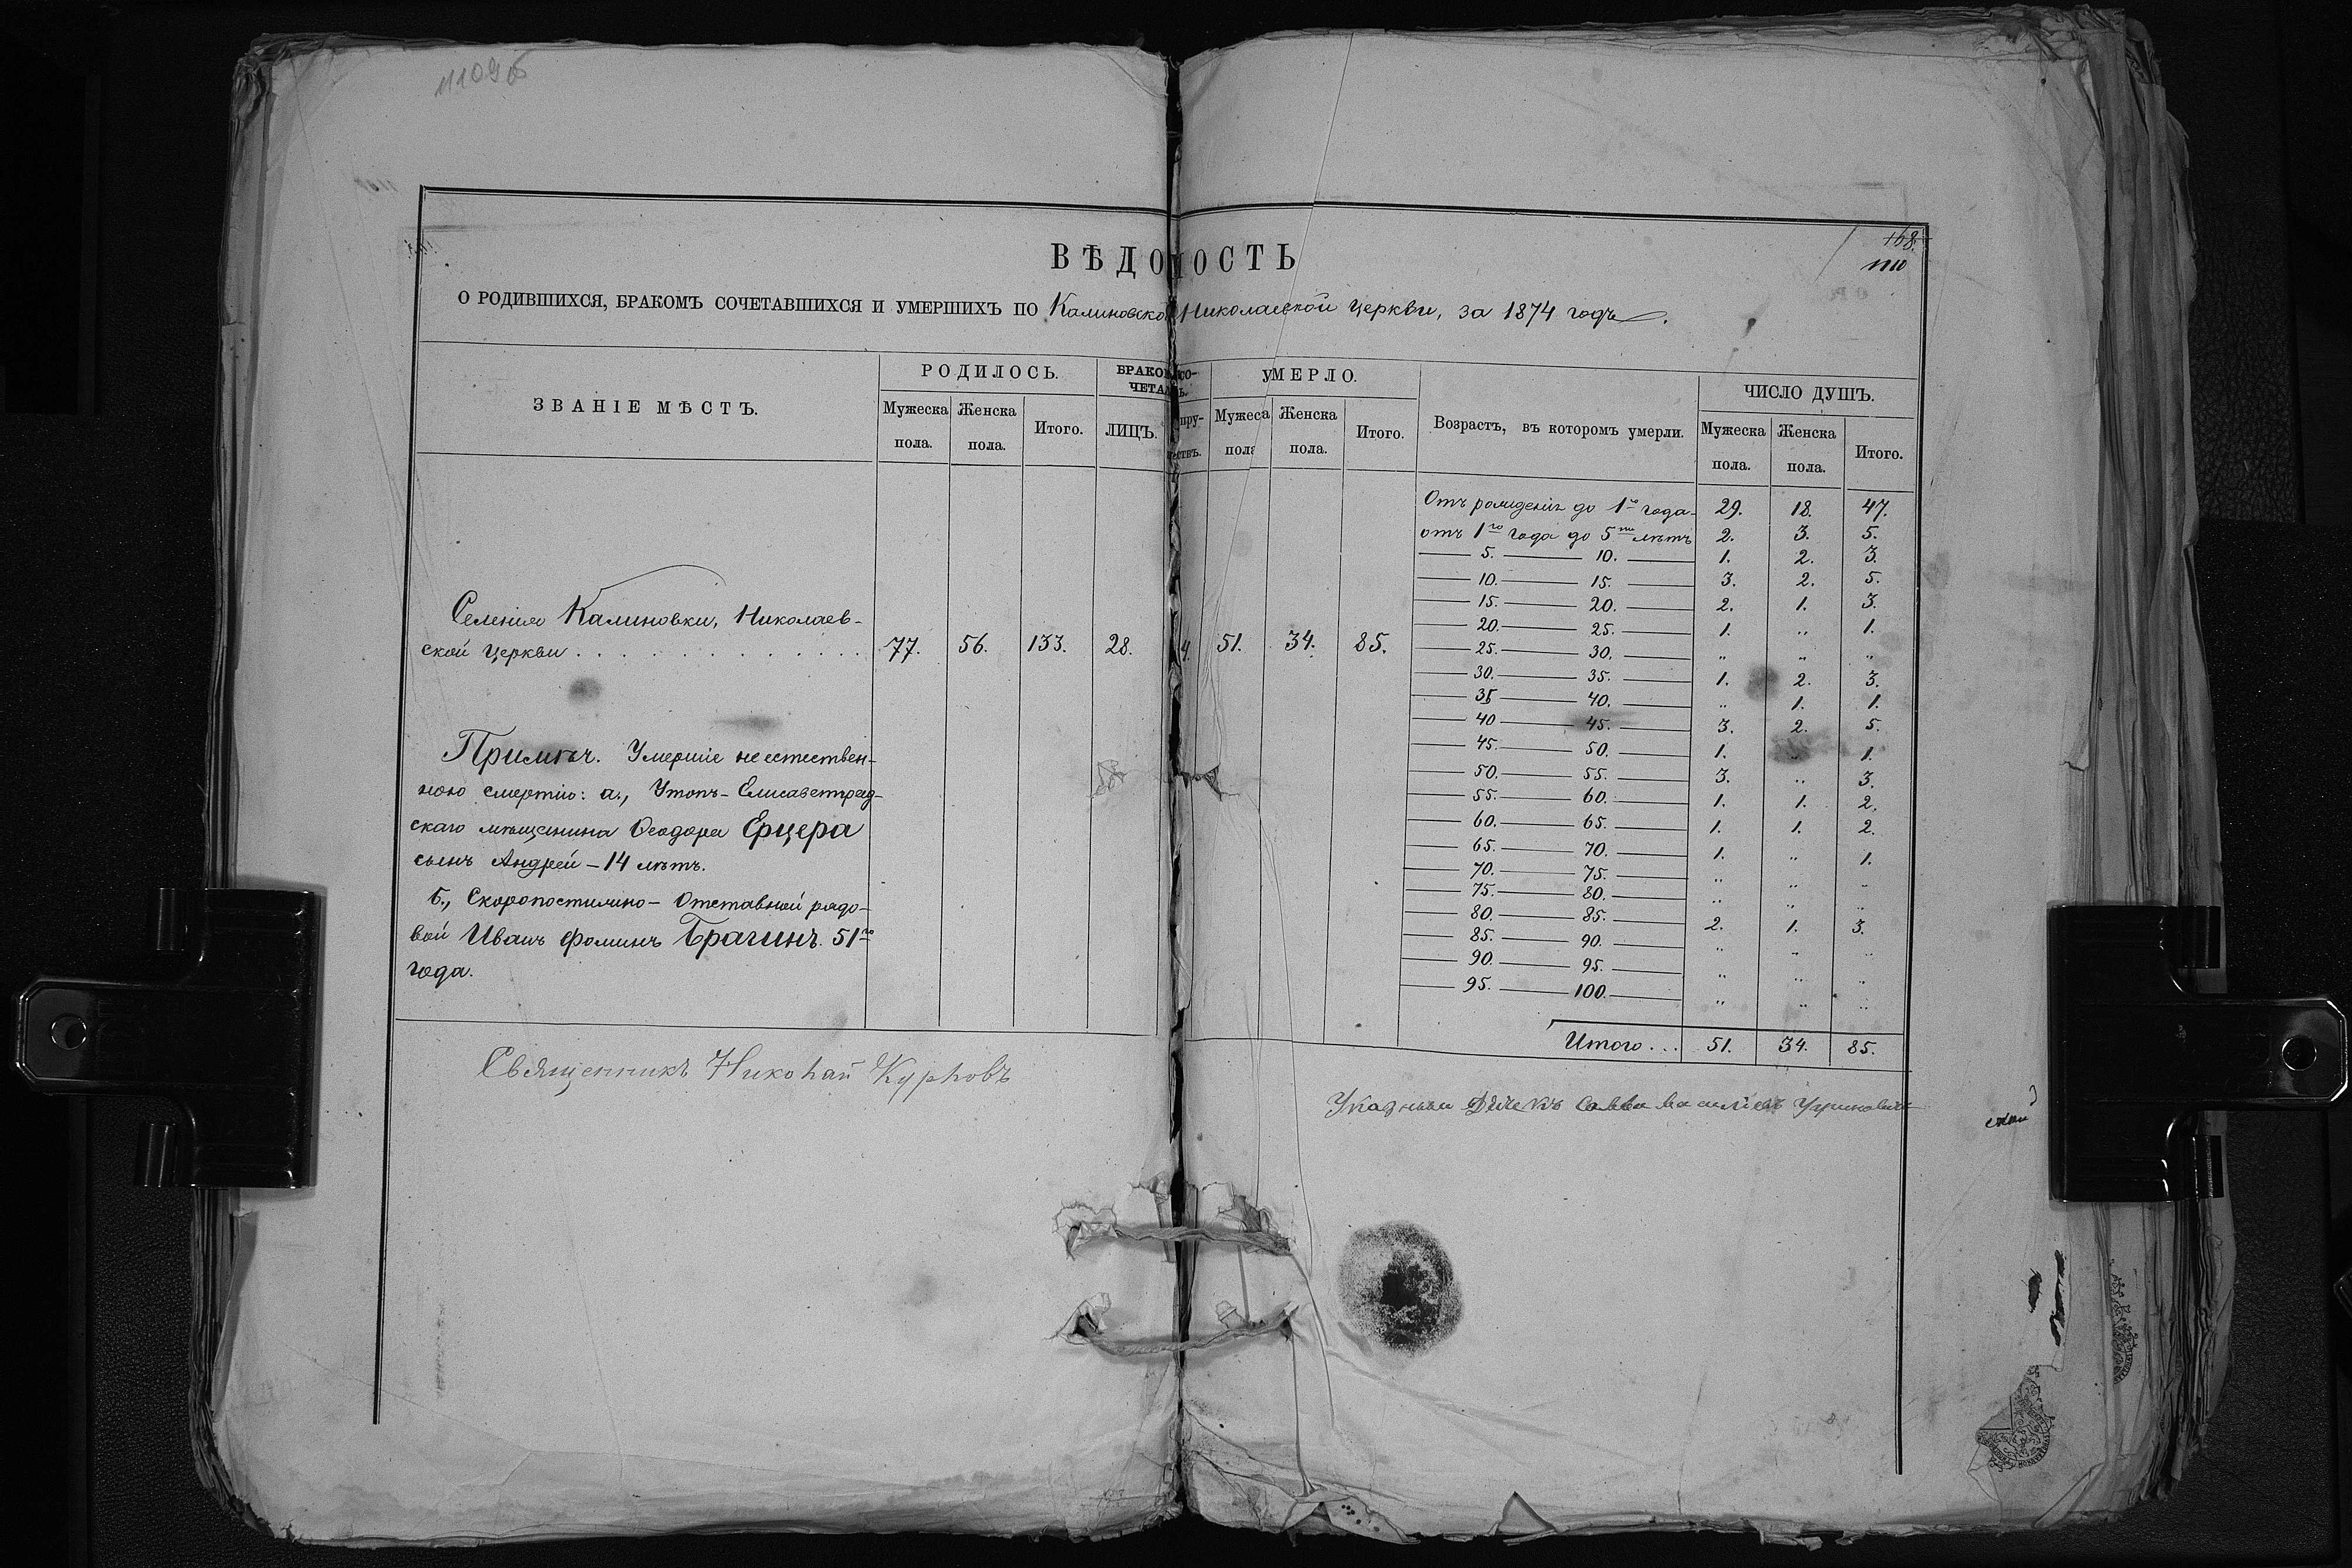 1109 б
168.
1110
ВѢДОМОСТЬ
О РОДИВШИХСЯ, БРАКОМЪ СОЧЕТАВШИХСЯ И УМЕРШИХЪ ПО Калиновской Николаевской Церкви, за 1874 годъ.
ЗВАНІЕ МѢСТЪ.
РОДИЛОСЬ.
Мужеска пола.
Женска пола.
Итого.
БРАКОМЪ СО-
ЧЕТАЛОСЬ.
ЛИЦЪ.
УМЕРЛО.
Мужеска пола
Женска пола.
Итого.
Возрастъ, въ которомъ умерли.
ЧИСЛО ДУШЪ.
Мужеска пола.
Женска пола.
Итого.
Селенія Калиновки, Николаев-
ской Церкви . . . . . . . . . . . . 77. 56. 133. 28. 4. 51. 34. 85.
Примѣч. Умершіе неестествен-
ною смертію: а., Утопъ - Елисаветград-
скаго мѣщанина Ѳеодора Ерцера
сынъ Андрей - 14 лѣтъ.
б., Скоропостижно - Отставной рядо-
вой Иванъ Фоминъ Брагинъ. 51го
года.
Отъ рожденія до 1го года. 29. 18. 47.
отъ 1го года до 5ти лѣтъ 2. 3. 5.
5. 10. 1. 2. 3.
10. 15. 3. 2. 5.
15. 20. 2. 1. 3.
20. 25. 1. „ 1.
25. 30. „ „ „
30. 35. 1. 2. 3.
35 40. „ 1. 1.
40 45. 3. 2. 5.
45. 50. 1. „ 1.
50. 55. 3. „ 3.
55. 60. 1. 1. 2.
60. 65. 1. 1. 2.
65. 70. 1. „ 1.
70. 75. „ „ „
75. 80. „ „ „
80. 85. 2. 1. 3.
85. 90. „ „ „
90. 95. „ „ „
95. 100. „ „ „
Итого . . . 51. 34. 85.
Священникъ Николай Курловъ
Указный Дьячекъ Савва Василіевъ